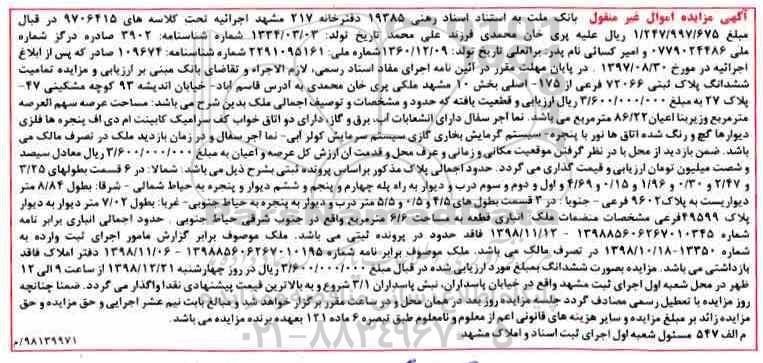 آگهی مزایده اموال غیر منقول بانک ملت به استناد اسناد رهنی ۱۹۳۸۵ دفترخانه ۲۱۷ مشهد اجرائیه تحت کلاسه های ۹۷۰۶۴۱۵ در قبال
مبلغ ۱/۲۴۷/۹۹۷/۶۷۵ ریال علیه پری خان محمدی فرزند علی محمد تاریخ تولد: ۱۳۳۴/۰۳/۰۳ شماره شناسنامه: ۳۹۰۲ صادره درگز شماره
ملی ۰۷۷۹۰۲۴۴۸۶ و امیر کسائی نام پدر: براتعلی تاریخ تولد: ۱۳۶۰/۱۲/۰۹ شماره ملی: ۲۲۹۱۰۹۵۱۶۱ شماره شناسنامه: ۱۰۹۶۷۴ صادره که پس از ابلاغ
اجرائیه در مورخ ۱۳۹۷/۰۸/۳۰ . در پایان مهلت مقرر در آئین نامه اجرای مفاد اسناد رسمی، لازم الاجراء و تقاضای بانک مبنی بر ارزیابی و مزایده تمامیت
ششدانگ پلاک ثبتی ۷۲۰۶۶ فرعی از ۱۷۵ اصلی بخش ۱۰ مشهد ملکی پری خان محمدی به آدرس قاسم اباد- خیابان اندیشه ۹۳ کوچه مشکینی ۴۷-
پلاک ۲۷ به مبلغ ۳/۶۰۰/۰۰۰/۰۰۰ ریال ارزیابی و قطعیت یافته که حدود و مشخصات و توصیف اجمالی ملک بدین شرح می باشد: مساحت عرصه سهم العرصه
مترمربع وزیربنا اعیان ۸۶/۲۲ مترمربع می باشد. نما آجر سفال دارای انشعابات آب، برق و گاز، دارای دو اتاق خواب کف سرامیک کابینت ام دی اف پنجره ها فلزی
دیوارها گچ و رنگ شده اتاق ها نور با پنجره- سیستم گرمایش بخاری گازی سیستم سرمایش کولر آبی- نما آجر سفال و در زمان بازدید ملک در تصرف مالک می
باشد. ضمن بازدید از محل با در نظر گرفتن موقعیت مکانی و زمانی و عرف محل و قدمت آن ارزش کل عرصه و اعیان به مبلغ ۳/۶۰۰/۰۰۰/۰۰۰ ریال معادل سیصد
و شصت میلیون تومان ارزیابی و قیمت گذاری می گردد. حدود اجمالی پلاک مذکور براساس پرونده ثبتی بشرح ذیل می باشد: شمالا: در ۶ قسمت بطولهای ۳/۲۵
و ۲/۴۷ و ۰/۳۰ و ۱/۹۶ و ۰/۱۵ و ۴/۶۹ و اول و دوم و سوم درب و دیوار به راه پله چهارم و پنجم و ششم دیوار و پنجره به حیاط شمالی - شرقا: بطول ۸/۸۴ متر
دیواریست به پلاک ۹۶۰۲ فرعی - جنوبا: در ۳ قسمت بطول های ۴/۵ و ۰/۵ و ۵/۵ متر درب و دیوار به پنجره به حیاط جنوبی- غربا: بطول ۷/۰۲ متر دیوار به دیوار
پلاک ۴۹۵۹۹ فرعی مشخصات منضمات ملک: انباری قطعه به مساحت ۶/۶ مترمربع واقع در جنوب شرقی حیاط جنوبی . حدود اجمالی انباری برابر نامه
شماره ۱۳۹۸۸۵۶۰۶۲۶۷۰۱۰۳۴۵ - ۱۳۹۸/۱۱/۱۲ فاقد حدود در پرونده ثبتی می باشد. ملک موصوف برابر گزارش مامور اجرای ثبت وارده به
شماره ۱۳۳۵۰-۱۳۹۸/۱۰/۱۸ در تصرف مالک می باشد. ملک موصوف برابر نامه شماره ۱۳۹۸۸۵۶۰۶۲۶۷۰۱۰۱۹۵ - ۱۳۹۸/۱۱/۰۶ دفتر املاک فاقد
بازداشتی می باشد. مزایده بصورت ششدانگ بمبلغ مورد ارزیابی شده در قبال مبلغ ۳/۶۰۰/۰۰۰/۰۰۰ ریال در روز چهارشنبه ۱۳۹۸/۱۲/۲۱ از ساعت ۹ الی ۱۲
ظهر در محل شعبه اول اجرای ثبت مشهد واقع در خیابان پاسداران، نبش پاسداران ۳/۱ شروع و به بالاترین قیمت پیشنهادی نقدا واگذار می گردد. ضمنا چنانچه
روز مزایده با تعطیل رسمی مصادف گردد جلسه مزایده روز بعد در همان محل و در ساعت مقرر برگزار خواهد شد و مبالغ بابت نیم عشر اجرایی و حق مزایده و حق
مزایده زائد بر مبلغ مزایده و سایر هزینه های قانونی اعم از معلوم و نامعلوم طبق تبصره ۶ ماده ۱۲۱ بعهده برنده مزایده می باشد.
م الف ۵۴۷ مسئول شعبه اول اجرای ثبت اسناد و املاک مشهد
۹۸۱۳۹۹۷۱/م
۰۲۱-۸۸۳۴۹۶۷۰-۵